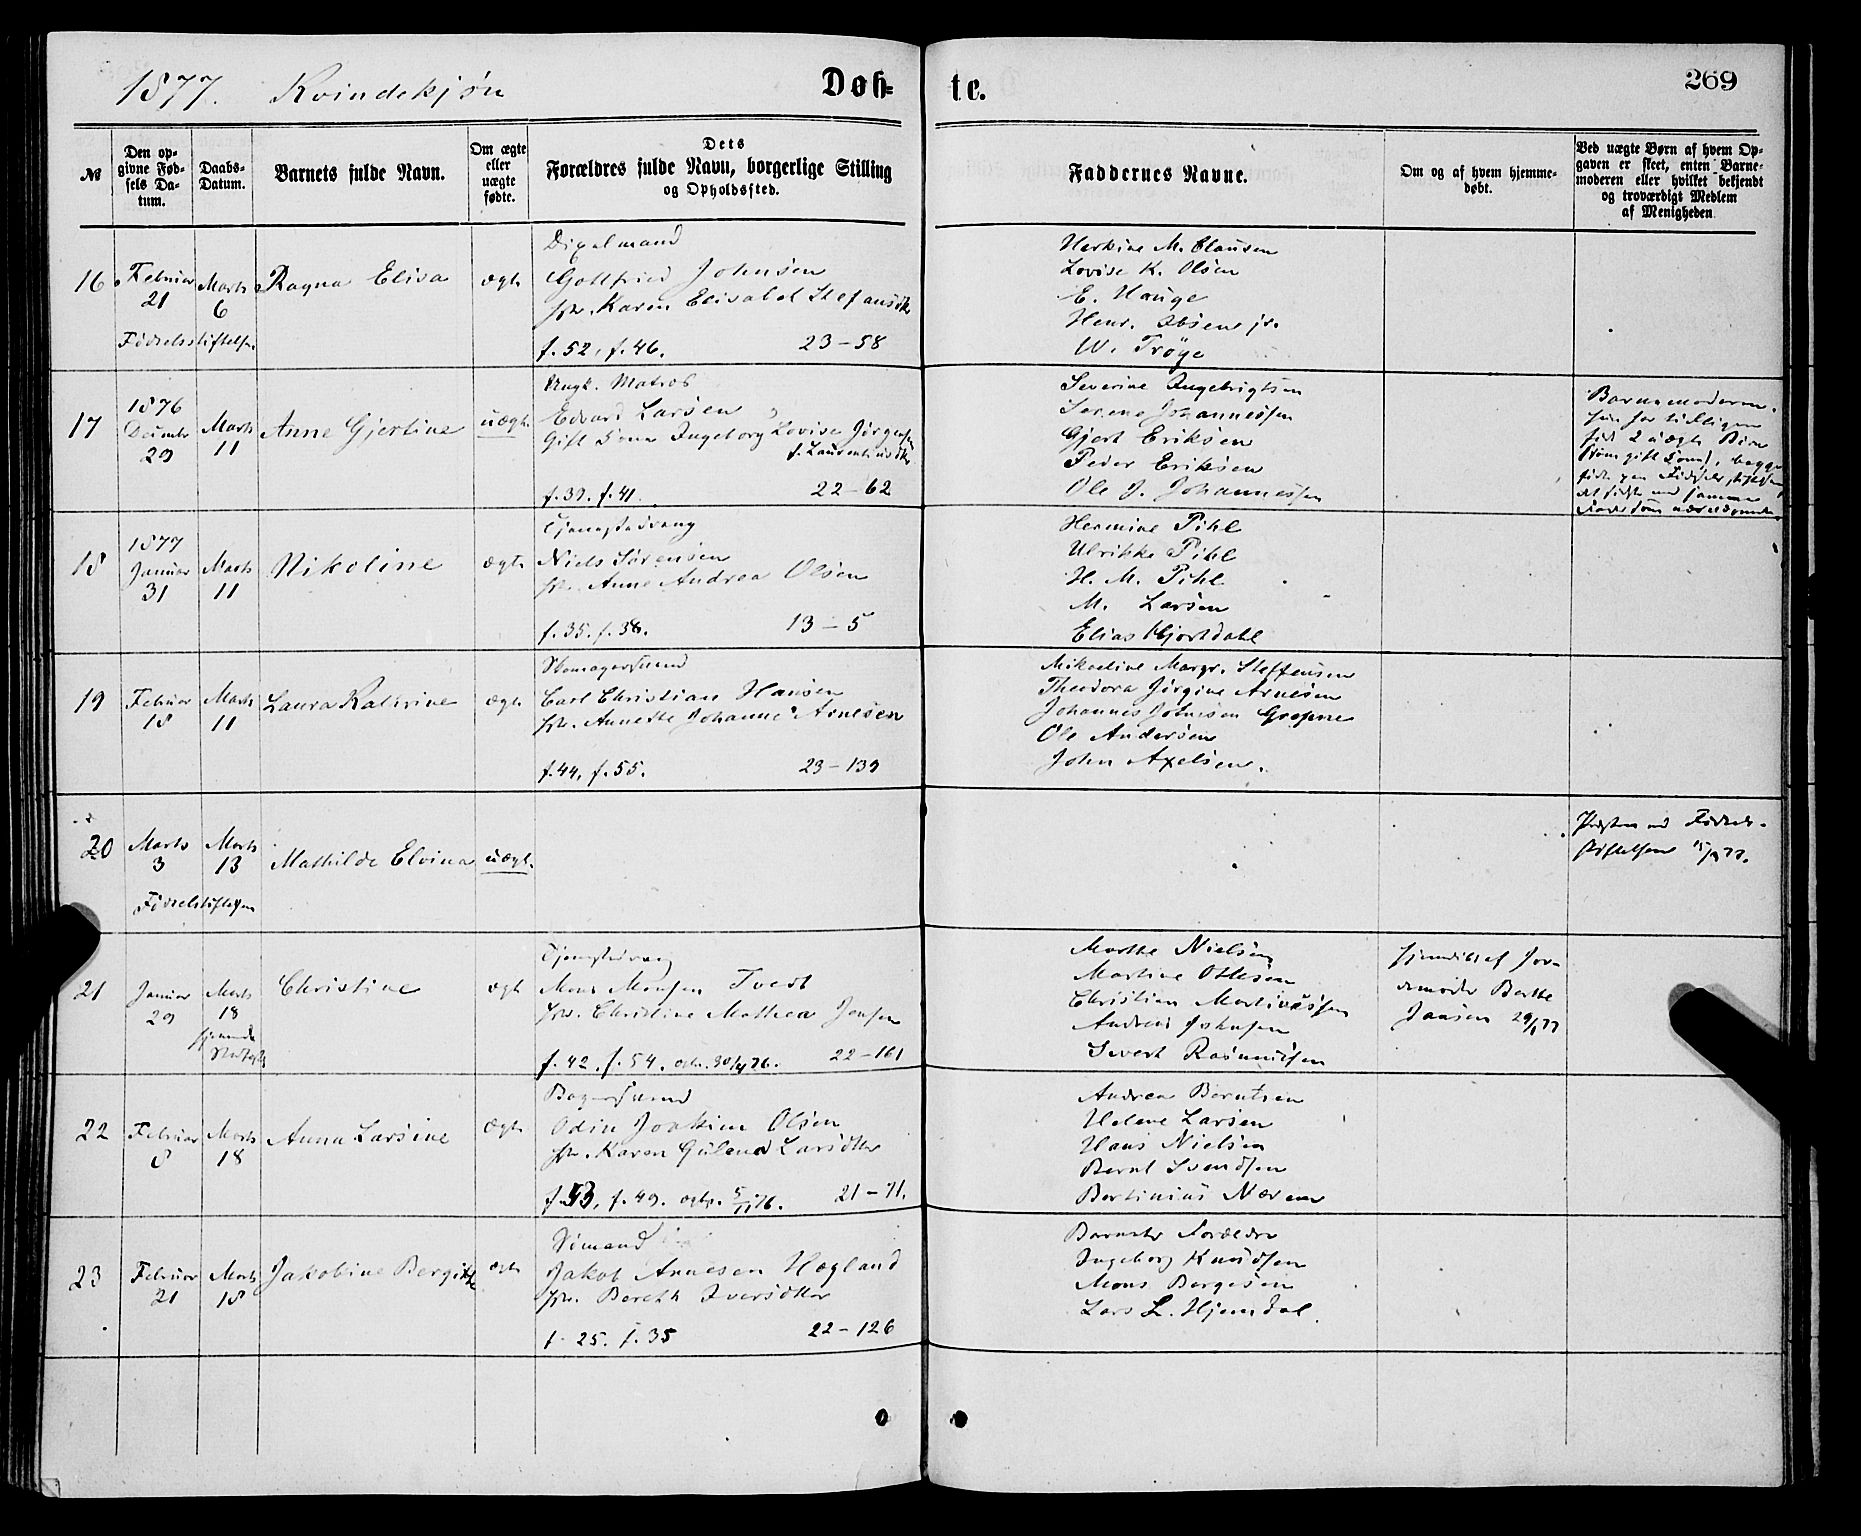 1877. Kvindekjøn Døb= te. 269
№
Den op-
givne Fød-
sels Da-
tum.
Daabs-
Datum.
Barnets fulde Navn.
Om ægte
eller
uægte
fødte.
Dets
Forældres fulde Navn, borgerlige Stilling
og Opholdssted.
Faddernes Navne.
Om og af hvem hjemme-
døbt.
Ved uægte Børn af hvem Op-
gaven er skeet, enten Barne-
moderen eller hvilket bekjendt
og troværdigt Medlem
af Menigheden.
16
Februar
21
Marts
6
Fødselsstiftelsen
Ragna Elisa
ægte
Gottfried Johnsen
Karen Elisabet Stefansdtr
f. 52, f. 46. 23-58
M. Clausen
Lovise K. Olsen
E. Hauge
Henr. Ibsen jr.
W. Trøye
17
1876
Decembr
29
Marts
11
Anne Gjertine
uægte
Ungk. Matros
Edvard Larsen
Gift Kone Ingeborg Lovise Jørgensen
f. Laurentiusdtr
f. 39. f. 41. 22-62
Severine Ingebrigtsen
Serene Johannessen
Gjert Eriksen
Peder Eriksen
Ole J. Johannessen
Barnemoderen.
hun har tidligere
født 2 uægte Børn
18
1877
Januar
31
Marts
11
Nikoline
ægte
Niels Sørensen
Anne Andrea Olsen
f. 35. f. 38. 13-5
Hermine Pihl
Ulrikke Pihl
H. M. Pihl
M. Larsen
Elias Hjortdahl
19
Februar
18
Marts
11
Laura Kathrine
ægte
Skomagersvend
Carl Christian Hansen
Annette Johanne Arnesen
f. 44, f. 55. 23-139
Mikaeline Margr. Steffensen
Theodora Jørgine Arnesen
Johannes Johnsen
Ole Andersen
John Axelsen.
20
Marts
3
Marts
13
Fødselsstiftelsen
Mathilde Elvina
uægte
Præsten ved Fødsels-
stiftelsen
21
Januar
29
Marts
18
Christine
ægte
Mons Monsen Tvedt
Christine Mathea Jansen
f. 42. f. 54. 22-161
Marthe Nielsen
Martine Ottesen
Christian Martinussen
Andreas Johnsen
Sivert Rasmussen
hjemdøbt af Jor-
demoder Berthe
Jansen 29/1 77
22
Februar
8
Marts
18
Anna Larsine
ægte
Bagersvend
Odin Joakim Olsen
Karen Gulena Larsdtter
f. 53, f. 49. 21-71.
Andrea Berntsen
Helene Larsen
Hans Nielsen
Bernt Svendsen
Bertinius
23
Februar
21
Marts
18
Jakobine Bergitte
ægte
Sømand
Jakob Arnesen Høgland
Iversdtter
f. 25. f. 35 22-126
Barnets Forældre
Ingeborg Knudsen
Mons Børgesen
Lars L. Hjemdal.